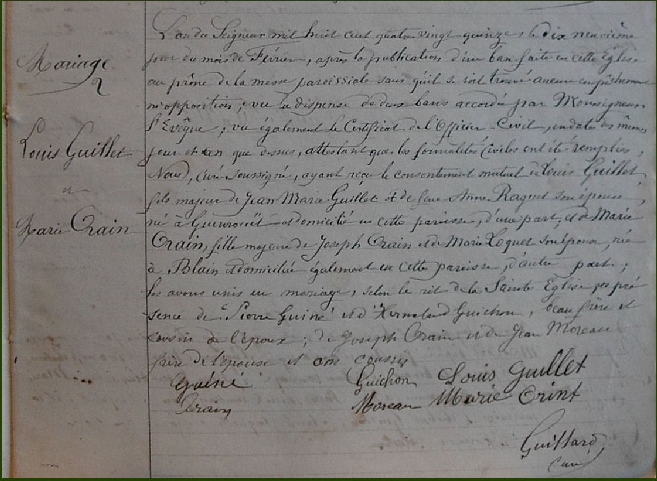 Mariage
Louis Guillet
et
Marie Crain
L'an du Seigneur mil huit cent quatre vingt quinze, le dix neuvième
jour du mois de Février, après la publication d'un ban faite en cette Eglise
au prône de la messe paroissiale sans qu'il se soit trouvé aucun empêchement
ni opposition; vu la dispense de deux bans accordée par Monseigneur
l'Evêque; vu également le Certificat de l'Officier Civil, en date des mêmes
jour et an que dessus, attestant que les formalités civiles ont été remplies,
Nous, curé soussigné, ayant reçu le consentement mutuel de Louis Guillet
fils majeur de Jean Marie Guillot et de feue Anne Raguet son épouse,
né à Guenrouët et domicilié en cette paroisse, d'une part, et de Marie
Crain, fille majeure de Joseph Crain et de Marie Loquet son épouse, née
à Blain et domiciliée également en cette paroisse, d'autre part;
les avons unis en mariage, selon le rit de la Sainte Eglise, en pré
sence de Pierre Guiné et d'Hermeland Guichon, beau frère et
cousin de l'époux; de Joseph Crain et de Jean Moreau
frère de l'épouse et cousin
Guiné Guichon Louis Guillet
Crain Moreau Marie Crint
Guittard
curé